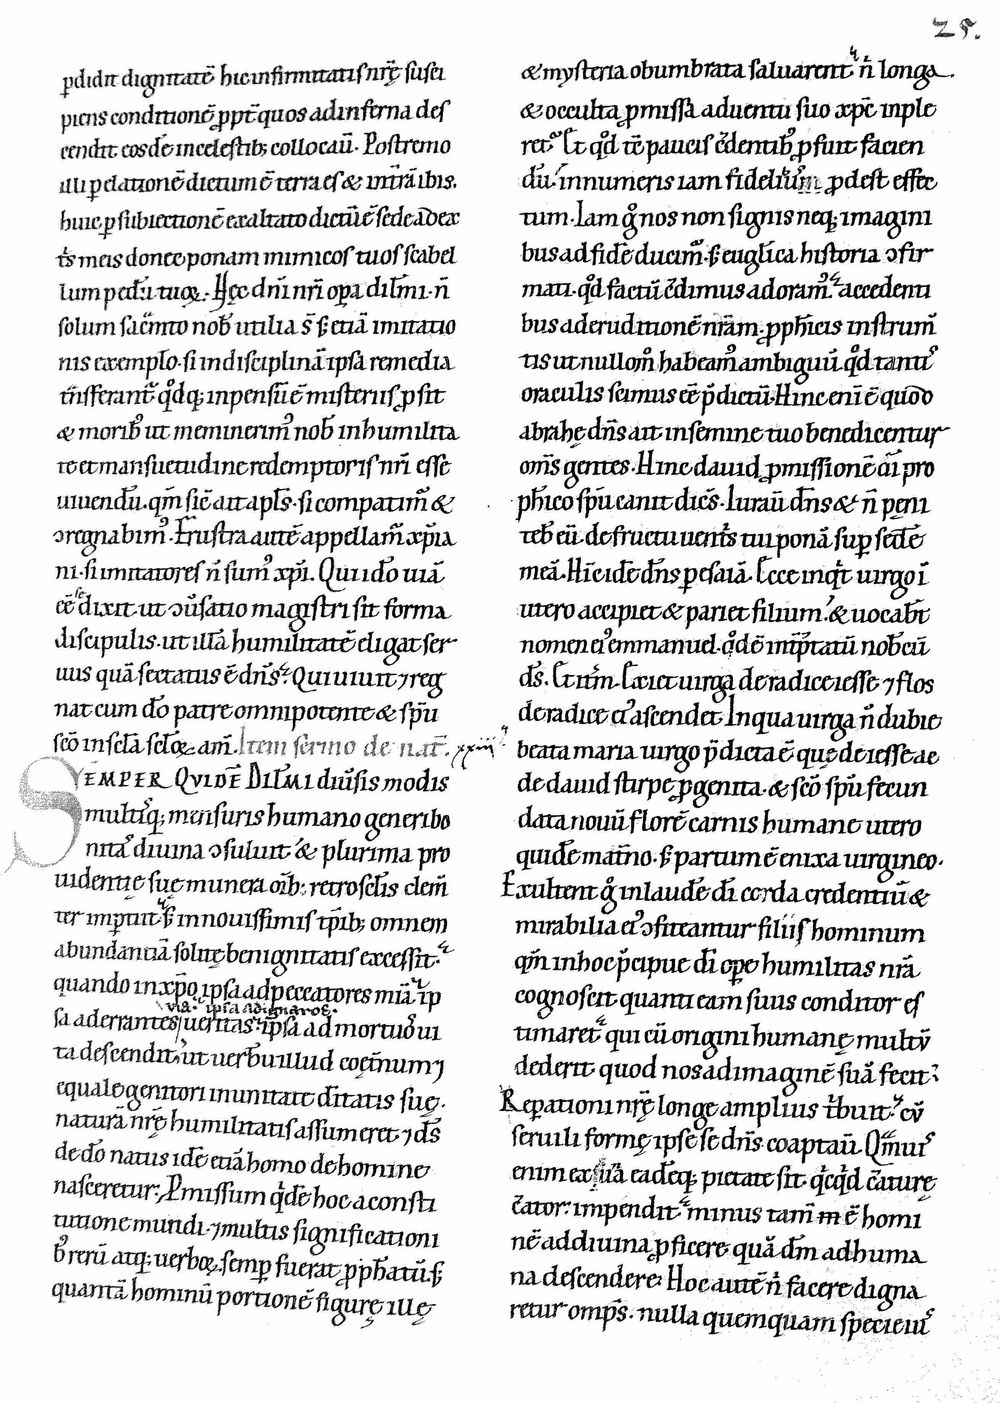 25.
ꝑdidit dignitatē hic infirmitatis nrę̄ susci
piens conditionē ꝓpt̄ quos ad inferna des
cendit eos dē in celestib; collocauı̄. Postremo
illi ꝑ dationē dictum ē terra es & int̄rā ibis.
huic ꝑ subiectionē exaltato dictū ē sede a dex
tˢ meis donec ponam inimicos tuos scabel
lum pedū tuoꝝ. Hęc dn̄i nr̄i oꝑa dil̄mi. n̄
solum sac̄m̄to nob᾽ utilia s̄ ꞩ etiā imitatio
nis exemplo. si in disciplinā ipsa remedia
t̄nsferant᾽ qͦdq; inpensū ē misteriis ꝓsit
& morib᾽ ut meminerim᾽ nob᾽ in humilita
te et mansuetudine redemptoris nr̄i esse
uiuendū. qm̄ sic̄ ait apls̄. si compatim᾽ &
ↄregnabim᾽. Frustra autē appellam᾽ xp̄ia
ni. si imitatores n̄ sum᾽ xp̄i. Qui ido uiā
sē
cē dixit ut ↄuˢatio magistri sit forma
discipulis. ut illā humilitatē eligat ser
uus quā sectatus ē dn̄s. Qui uiuit ⁊ reg
nat cum dō patre omnipotente & sp̄u
scō in sclā scloꝝ am̄. Item sermo de nat̄. xxiii
SEMPER QVIDĒ DIL̄MI diuˢis modis
multisq; mensuris humano generi bo
nitas diuina ↄsuluit & plurima pro
uidentię suę munera oīb; retro sclīs clem̄
ter imꝑtiit ꞩ in nouissimis tp̄ib; omnem
abundantiā solitę benignitatis excessit.
quando in xp̄o ipsa ad peccatores mīa ip
uia. ipsa ad ignaros.
sa ad errantes ueritas. ip̄sa ad mortuos ui
ta descendit, ut uerbū illud coęt̄num ⁊
equale genitori in unitate dītatis suę.
naturā nrę̄ humilitatis assumeret ⁊ ds̄
de dō natus idē etiā homo de homine
nasceretur; Pmissum qͥdē hoc a consti
tutione mundi. ⁊ multis significationi
b᾽ rerū atq; uerboꝝ. semꝑ fuerat ꝓph̄atū. ꞩ
quantā hominū portionē figurę ille
& mysteria obumbrata saluarent n̄ longa
& occulta ꝓmissa aduentu suo xp̄c imple
ret᾽ Et qͦd tē paucis c̄dentib᾽ ꝓfuit facien
dū. innumeris iam fideliū ꝓdest effec
tum. Iam gͦ nos non signis neq; imagini
bus ad fidē ducim᾽. ꞩ euglīca historia ↄfir
mati. qͦd factū c̄dimus adoram᾽. accedenti
bus ad eruditionē nr̄am. ꝓph̄icis instrum̄
tis ut nullom̊ habeam᾽ ambiguū. qͦd tantis
oraculis scimus cē p̄dictū. Hinc enī ē quod
abrahę dn̄s ait in semine tuo benedicentur
om̄s gentes. Hinc dauid ꝓmissionē dī pro
ph̄ico sp̄u canit dicēs. Iurauı̄ dn̄s & n̄ peni
teb᾽ eū. de fructu uentˢ tui ponā suꝑ sedē
meā. Hīc idē dn̄s ꝑ esaiā. Ecce inqͥt uirgo ī
utero accipiet & pariet filium. & uocabt̄
nomen ei᾽ emmanuel. qͦd ē int̄ꝑtatū nobcū
ds̄. Et itm̄. Exiet uirga de radice iesse ⁊ flos
de radice ei᾽ ascendet In qua uirga n̄ dubie
beata maria uirgo p̄dicta ē quę de iesse ac
de dauid stirpe ꝓgenita. & scō sp̄u fecun
data nouū florē carnis humane utero
quidē mat̄no. ꞩ partum ē enixa uirgineo.
Exultent gͦ in laudē dī corda credentiū &
mirabilia ei᾽ ↄfiteantur filiis hominum
qm̄ in hoc p̄cipue dī oꝑe humilitas nr̄a
cognoscit quanti eam suus conditor es
timaret qui cū origini humanę multū
dederit quod nos ad imaginē suā fecit;
Reꝑationi nrę̄ longe amplius t̄buit. cū
seruili formę ipse se dn̄s coaptauı̄. Qmuis
enim ex suā eadēq; pietate sit qͥcqͥd c̄aturę
c̄ator impendit minus tam̄ ē homi
nē ad diuina ꝓficere quā dm̄ ad huma
na descendere. Hoc autē n̄ facere digna
retur omp̄s. nulla quemquam species